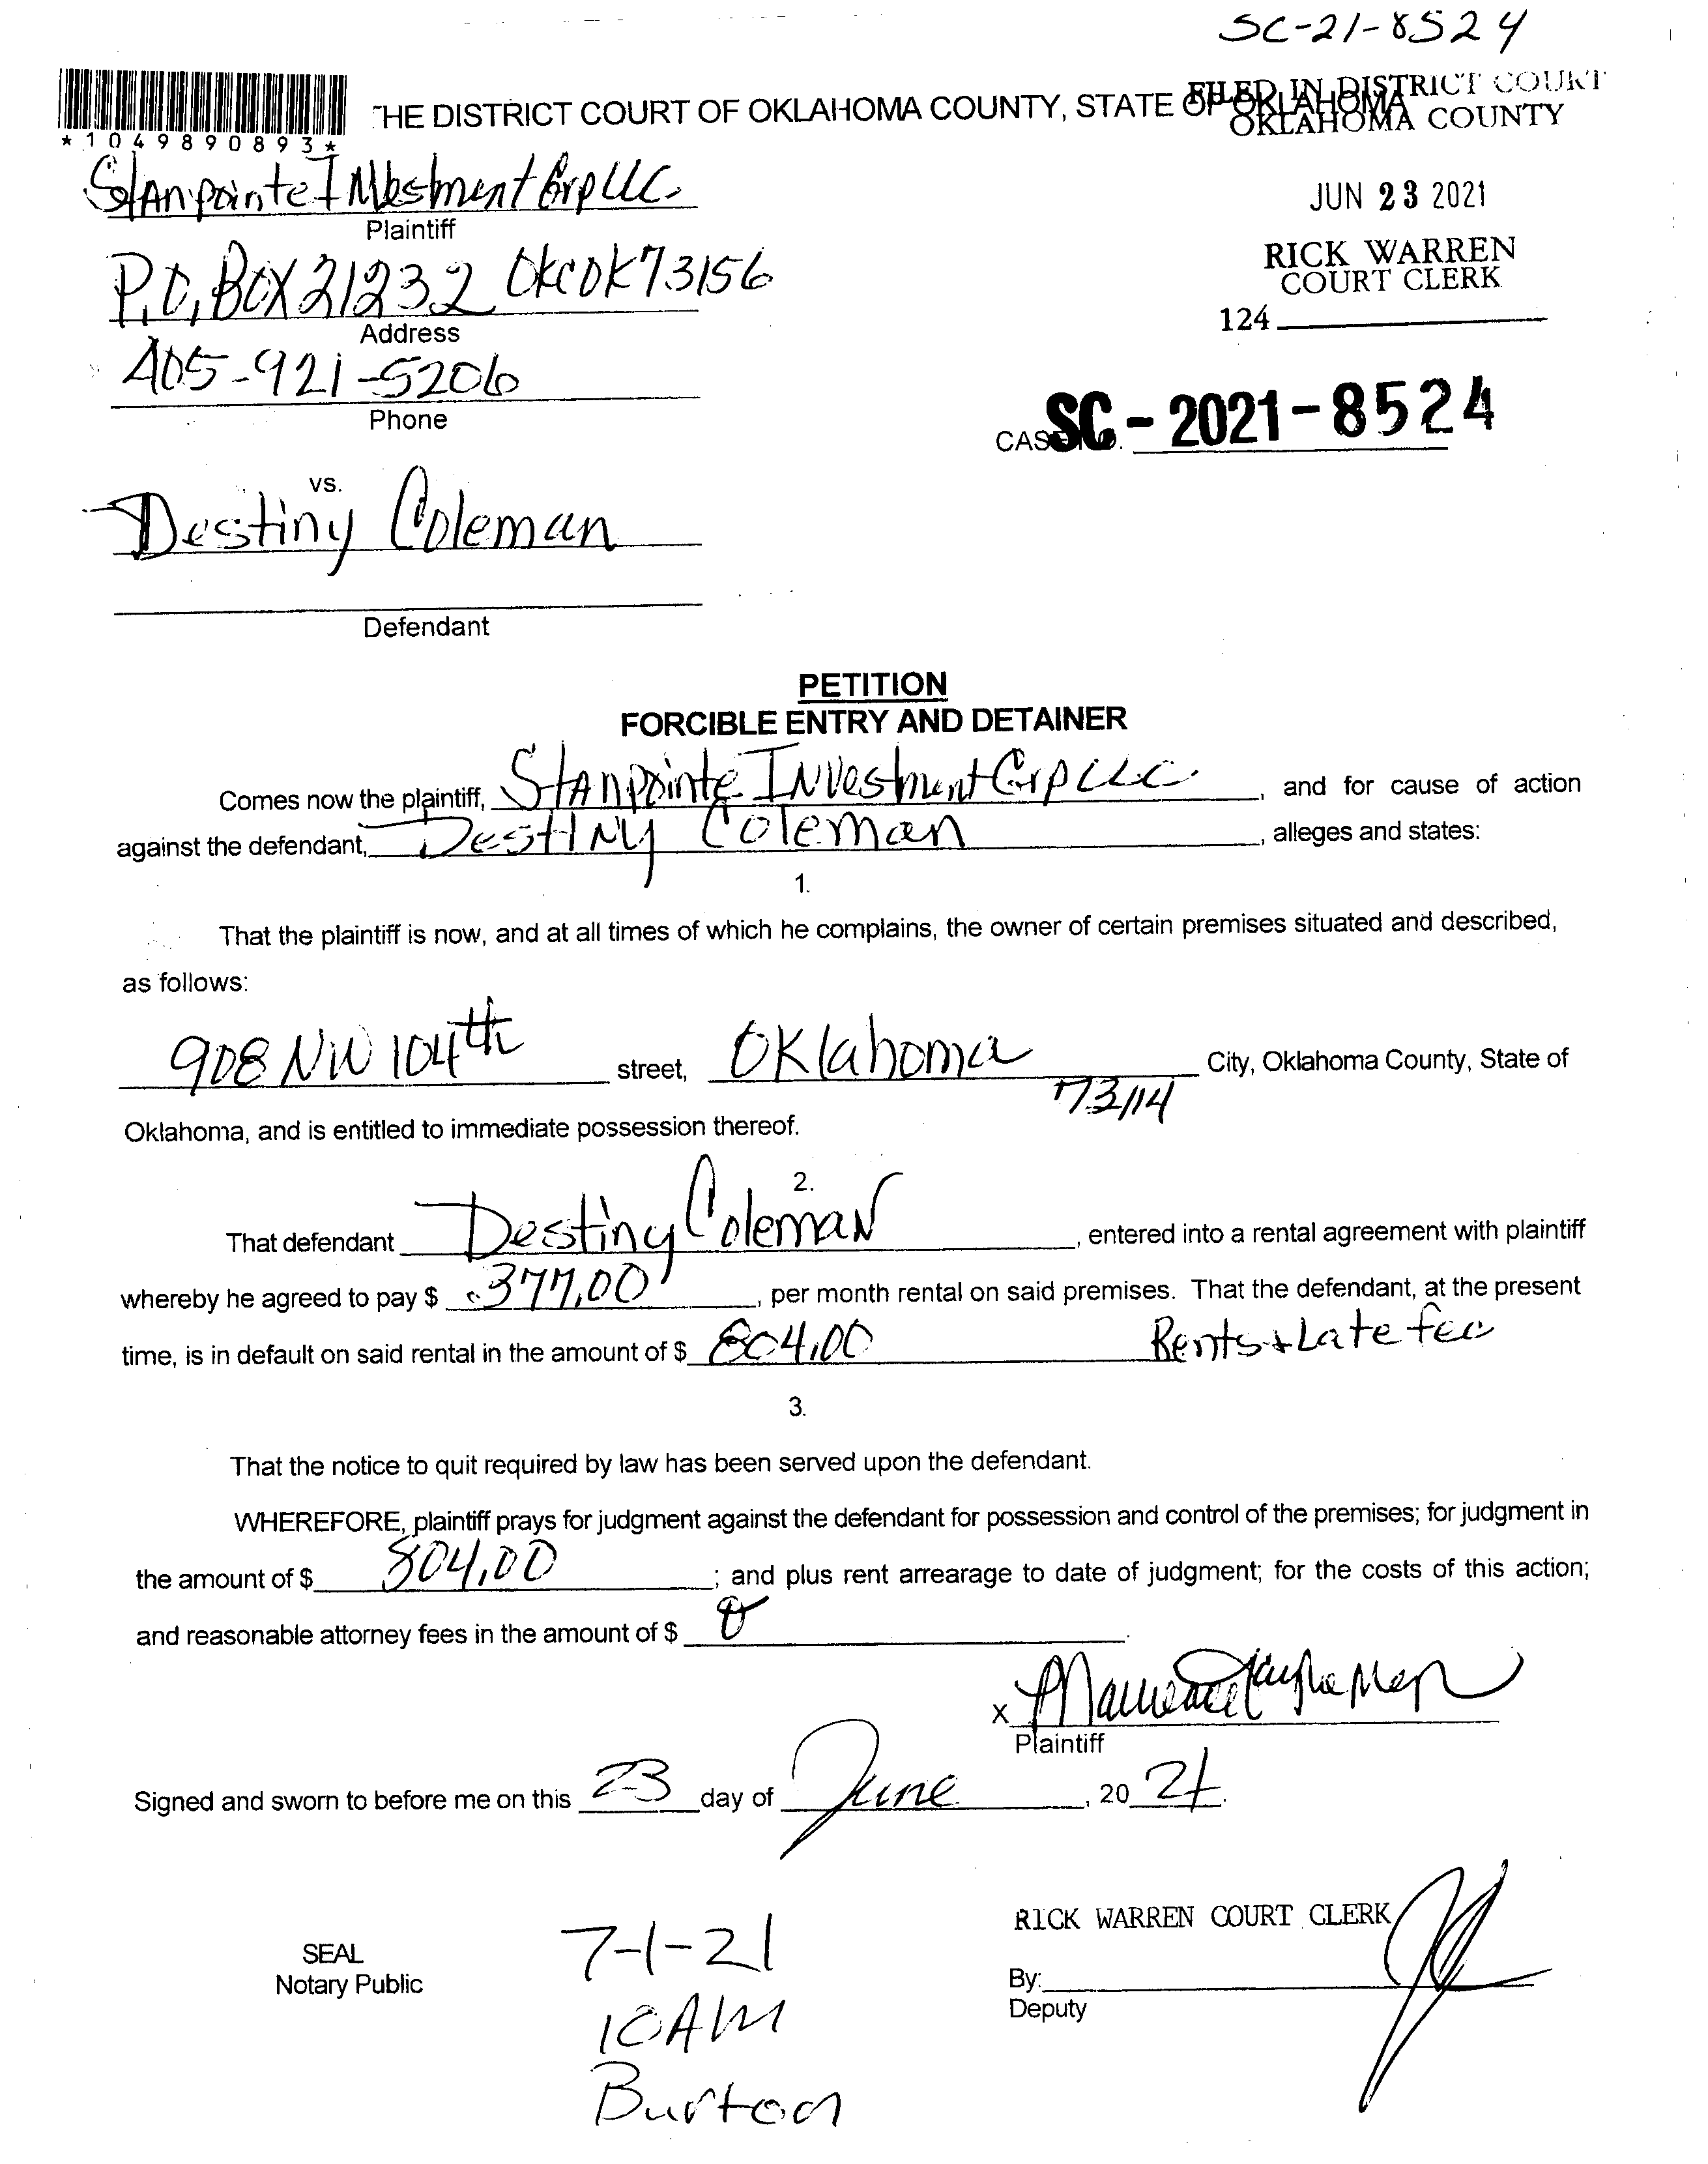 SC-21-8524
THE DISTRICT COURT OF OKLAHOMA COUNTY, STATE OF OKLAHOMA
FILED IN DISTRICT COURT
OKLAHOMA COUNTY
*1049890893*
StanPointe Investment Corp LLC
Plaintiff
JUN 23 2021
P.O. BOX 21232 OKC OK 73156
Address
RICK WARREN
COURT CLERK
124
405-921-5206
Phone
CASE NO. SC-2021-8524
vs.
Destiny Coleman
Defendant
PETITION
FORCIBLE ENTRY AND DETAINER
Comes now the plaintiff, StanPointe Investment Corp LLC, and for cause of action
against the defendant, Destiny Coleman, alleges and states:
1.
That the plaintiff is now, and at all times of which he complains, the owner of certain premises situated and described,
as follows:
908 NW 104th street, Oklahoma City, Oklahoma County, State of
73114
Oklahoma, and is entitled to immediate possession thereof.
2.
That defendant Destiny Coleman, entered into a rental agreement with plaintiff
whereby he agreed to pay $ 377.00, per month rental on said premises. That the defendant, at the present
time, is in default on said rental in the amount of $ 804.00 Rents + Late fee
3.
That the notice to quit required by law has been served upon the defendant.
WHEREFORE, plaintiff prays for judgment against the defendant for possession and control of the premises; for judgment in
the amount of $ 804.00; and plus rent arrearage to date of judgment; for the costs of this action;
and reasonable attorney fees in the amount of $ 0.
x
Plaintiff
Signed and sworn to before me on this 23 day of June, 20 21.
RICK WARREN COURT CLERK
SEAL
Notary Public
7-1-21
By:
Deputy
10AM
Burton